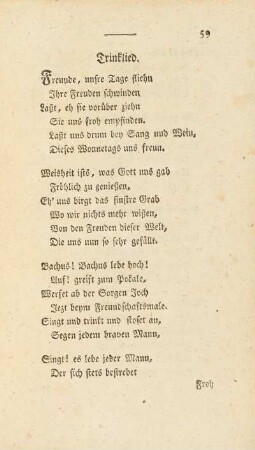 59
Trinklied.
Freunde, unsre Tage fliehn
Ihre Freuden schwinden
Laßt, eh sie vorüber ziehn
Sie uns froh empfinden.
Laßt uns drum bey Sang und Wein,
Dieses Wonnetags uns freun.
Weisheit ists, was Gott uns gab
Fröhlich zu genießen,
Eh' uns birgt das finstre Grab
Wo wir nichts mehr wißen,
Von den Freuden dieser Welt,
Die uns nun so sehr gefällt.
Bachus! Bachus lebe hoch!
Auf! greift zum Pokale,
Werfet ab der Sorgen Joch
Jezt beym Freundschaftsmale.
Singt und trinkt und stoset an,
Segen jedem braven Mann,
Singt! es lebe jeder Mann,
Der sich stets bestrebet
Froh